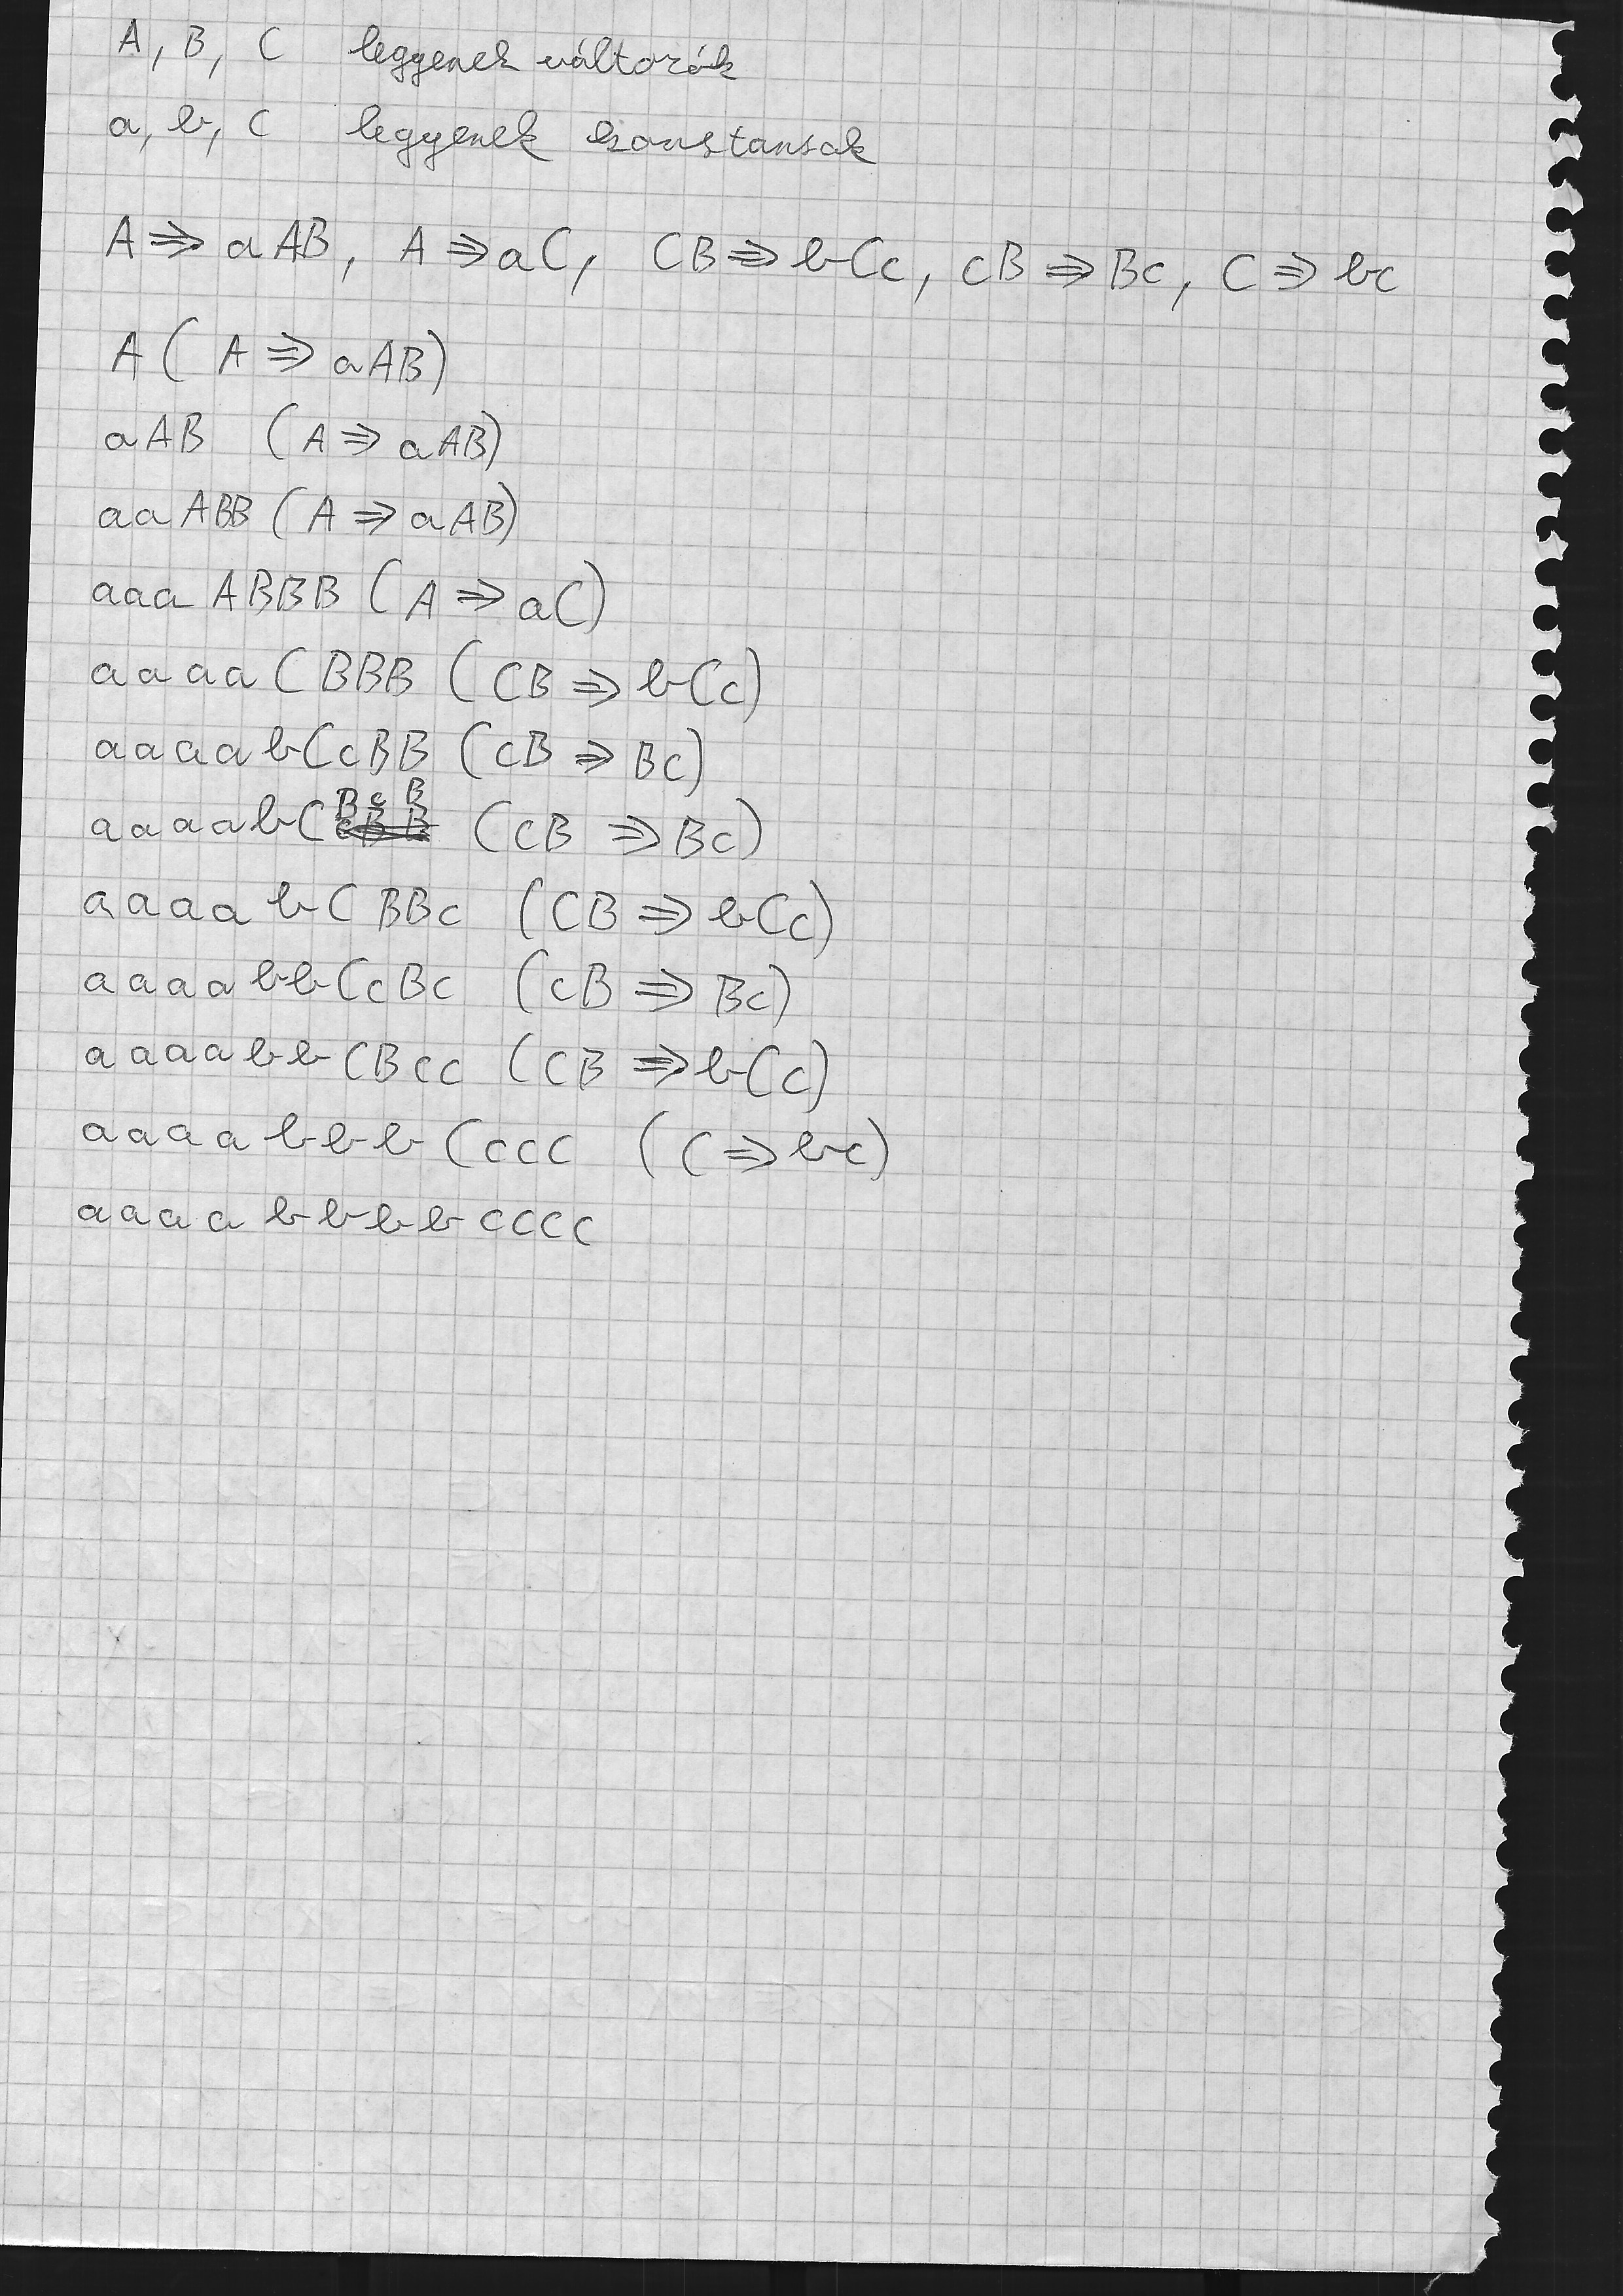 A, B, C legyenek változók
a, b, c legyenek konstansok
A ⇒ aAB, A ⇒ aC, CB ⇒ bCc, cB ⇒ Bc, C ⇒ bc
A (A ⇒ aAB)
aAB (A ⇒ aAB)
aaABB (A ⇒ aAB)
aaaABBB (A ⇒ aC)
aaaaCBBB (CB ⇒ bCc)
aaaabCcBB (cB ⇒ Bc)
aaaabCBcB (cB ⇒ Bc)
aaaabCBBc (CB ⇒ bCc)
aaaabbCcBc (cB ⇒ Bc)
aaaabbCBcc (CB ⇒ bCc)
aaaabbbCccc (C ⇒ bc)
aaaabbbbcccc